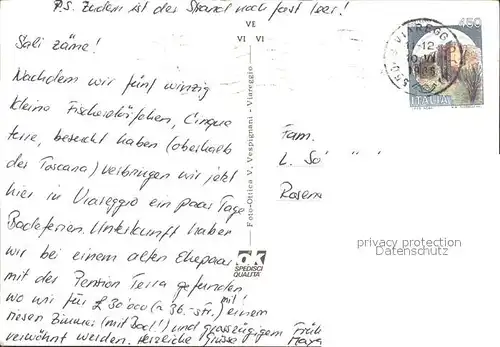 P.S. Zudem ist der Strand noch fast leer!
VE
VI VI
Sali zäme!
Nachdem wir fünf winzig
kleine Fischerdörfchen, Cinque
terre, besucht haben (oberhalb
der Toscana) verbringen wir jetzt
hier in Viareggio ein paar Tage
Badeferien. Unterkunft haben
wir bei einem alten Ehepaar
mit der Pension Terra gefunden,
wo wir für £ 30'000 (≈ 36.- sfr.) mit! einem
riesen Zimmer (mit Bad!) und grosszügigem Früh
verwöhnt werden. Herzliche Grüsse
Foto-Ottica V. Vespignani - Viareggio
OK
SPEDISCI
QUALITÀ
VIAREGG
450
ITALIA
Fam.
L.
privacy protection
Datenschutz